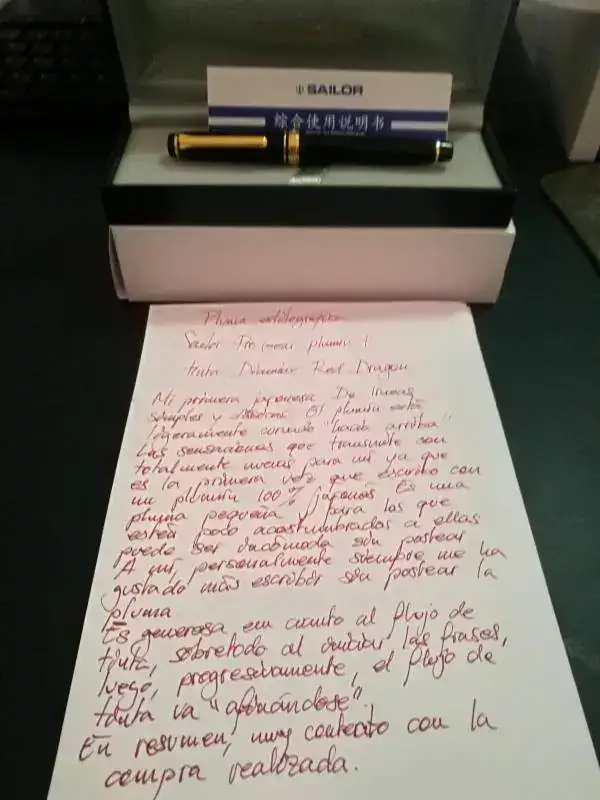 SAILOR
综合使用说明书
Pluma estilográfica
Sailor Pro Gear plumín f
tinta Diamine Red Dragon
Mi primera japonesa. De líneas
simples y clásicas. El plumín está
ligeramente curvado "hacia arriba"
Las sensaciones que transmite son
totalmente nuevas para mí ya que
es la primera vez que escribo con
un plumín 100% japonés. Es una
pluma pequeña y para los que
estén poco acostumbrados a ellas
puede ser incómoda sin postear
A mí, personalmente siempre me ha
gustado más escribir sin postear la
pluma.
Es generosa en cuanto al flujo de
tinta, sobretodo al iniciar las frases,
luego, progresivamente, el flujo de
tinta va "afinándose".
En resumen, muy contento con la
compra realizada.